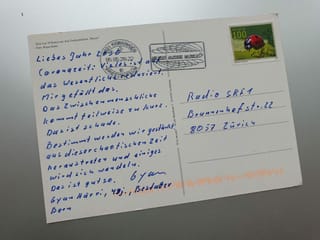 Liebes Jahr 2020
Coronazeit: Vieles ist auf
das Wesentliche reduziert.
Mir gefällt das.
Das Zwischenmenschliche
kommt teilweise zu kurz.
Das ist schade.
Bestimmt werden wir gestärkt
aus dieser chaotischen Zeit
heraustreten und einiges
wird sich wandeln.
Das ist gut so. Gyan
Gyan Härri, 49j., Bestatter
Bern
100
Radio SRF 1
Brunnenhofstr. 22
8057 Zürich